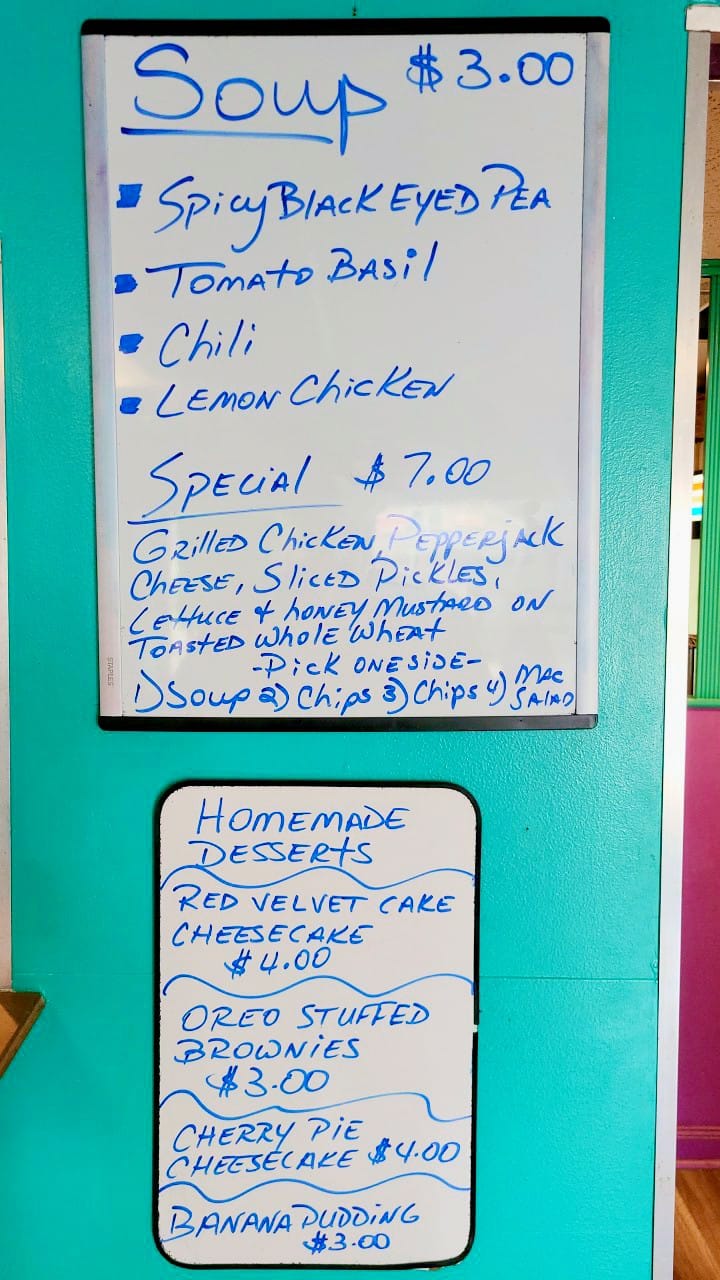 Soup $3.00
Spicy Black Eyed Pea
Tomato Basil
Chili
Lemon Chicken
Special $7.00
Grilled Chicken, Pepperjack
Cheese, Sliced Pickles,
Lettuce & honey Mustard on
Toasted Whole Wheat
-Pick one side-
1) Soup 2) Chips 3) Chips 4) Mac Salad
STAPLES
HOMEMADE
DESSERTS
RED VELVET CAKE
CHEESECAKE
$4.00
OREO STUFFED
BROWNIES
$3.00
CHERRY PIE
CHEESECAKE $4.00
BANANA PUDDING
$3.00